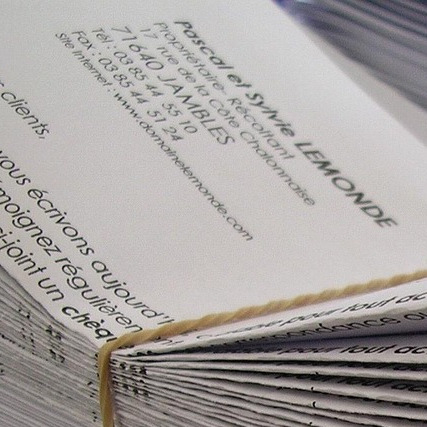 Pascal et Sylvie LEMONDE
Propriétaire-Récoltant
17 rue de la Côte Chalonnaise
71640 JAMBLES
Tél : 03 85 44 55 10
Fax : 03 85 44 51 24
Site Internet : www.domainelemonde.com
clients,
vous écrivons aujourd'
moignez régulièrem
ci-joint un chèq
pour tout ac